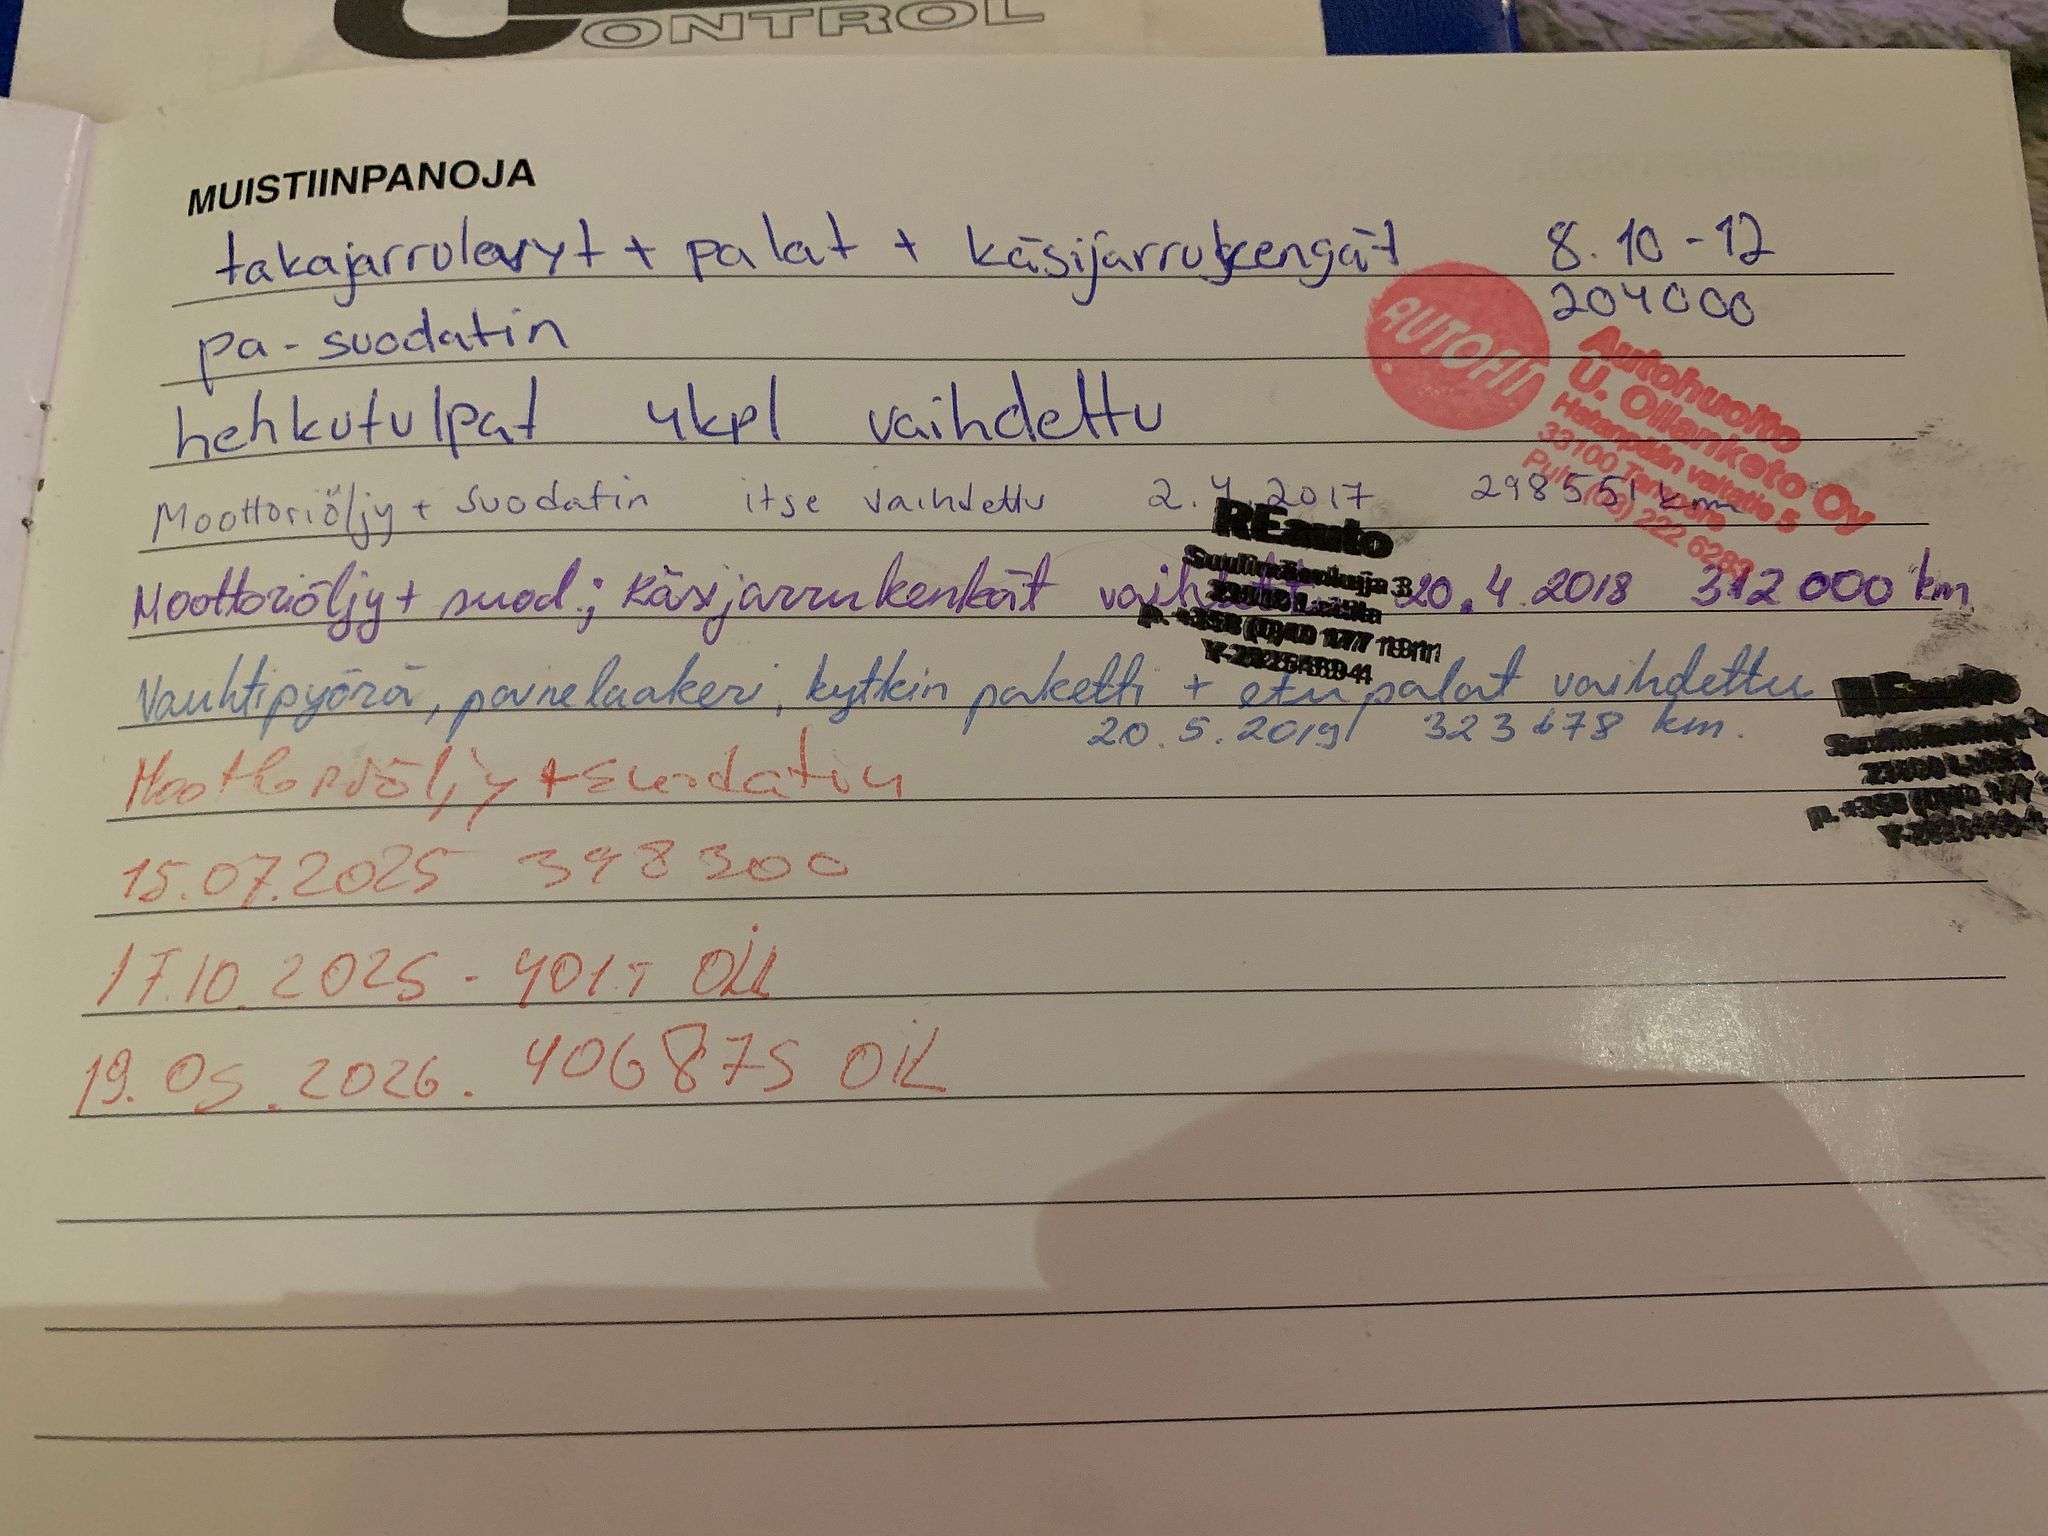 CONTROL
MUISTIINPANOJA
takajarrulevyt + palat + käsijarrukengät 8.10-12
204000
pa-suodatin
hehkutulpat 4kpl vaihdettu
AUTOFIT
Autohuolto
U. Ollanketo Oy
Hatanpään valtatie 5
33100 Tampere
Puh. (03) 222 6283
Moottoriöljy + suodatin itse vaihdettu 2.4.2017 298551 km
REauto
Moottoriöljy + suod.; Käsijarrukenkät 20.4.2018 312 000 km
Vauhtipyörä, painelaakeri, kytkin paketti + etupalat vaihdettu
20.5.2019 323678 km.
REauto
Moottoriöljy + suodatin
15.07.2025 398300
17.10.2025 - 401T OIL
19.05.2026. 406875 OIL